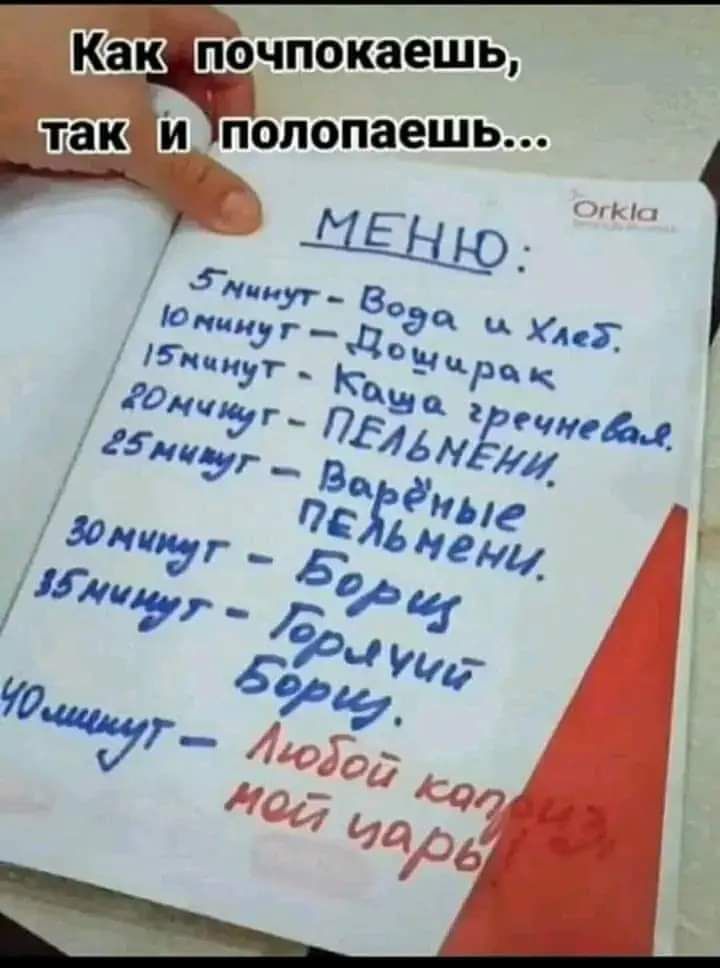 Как почпокаешь,
так и полопаешь...
Orkla
МЕНЮ:
5минут - Вода и Хлеб.
10минут - Доширак
15минут - Каша гречневая.
20минут - ПЕЛЬМЕНИ.
25минут - Варёные
ПЕЛЬМЕНИ.
30минут - Борщ
35минут - Горячий
Борщ.
40минут - Любой каприз,
мой царь!